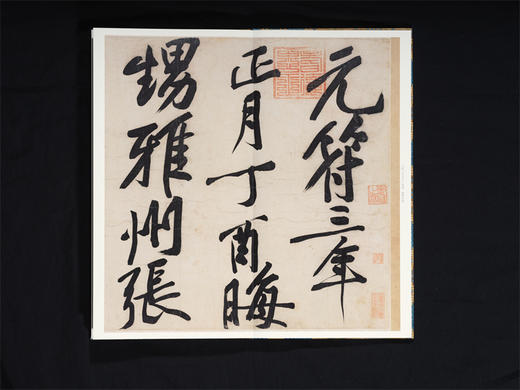 元符三年
正月丁酉晦
甥雅州張